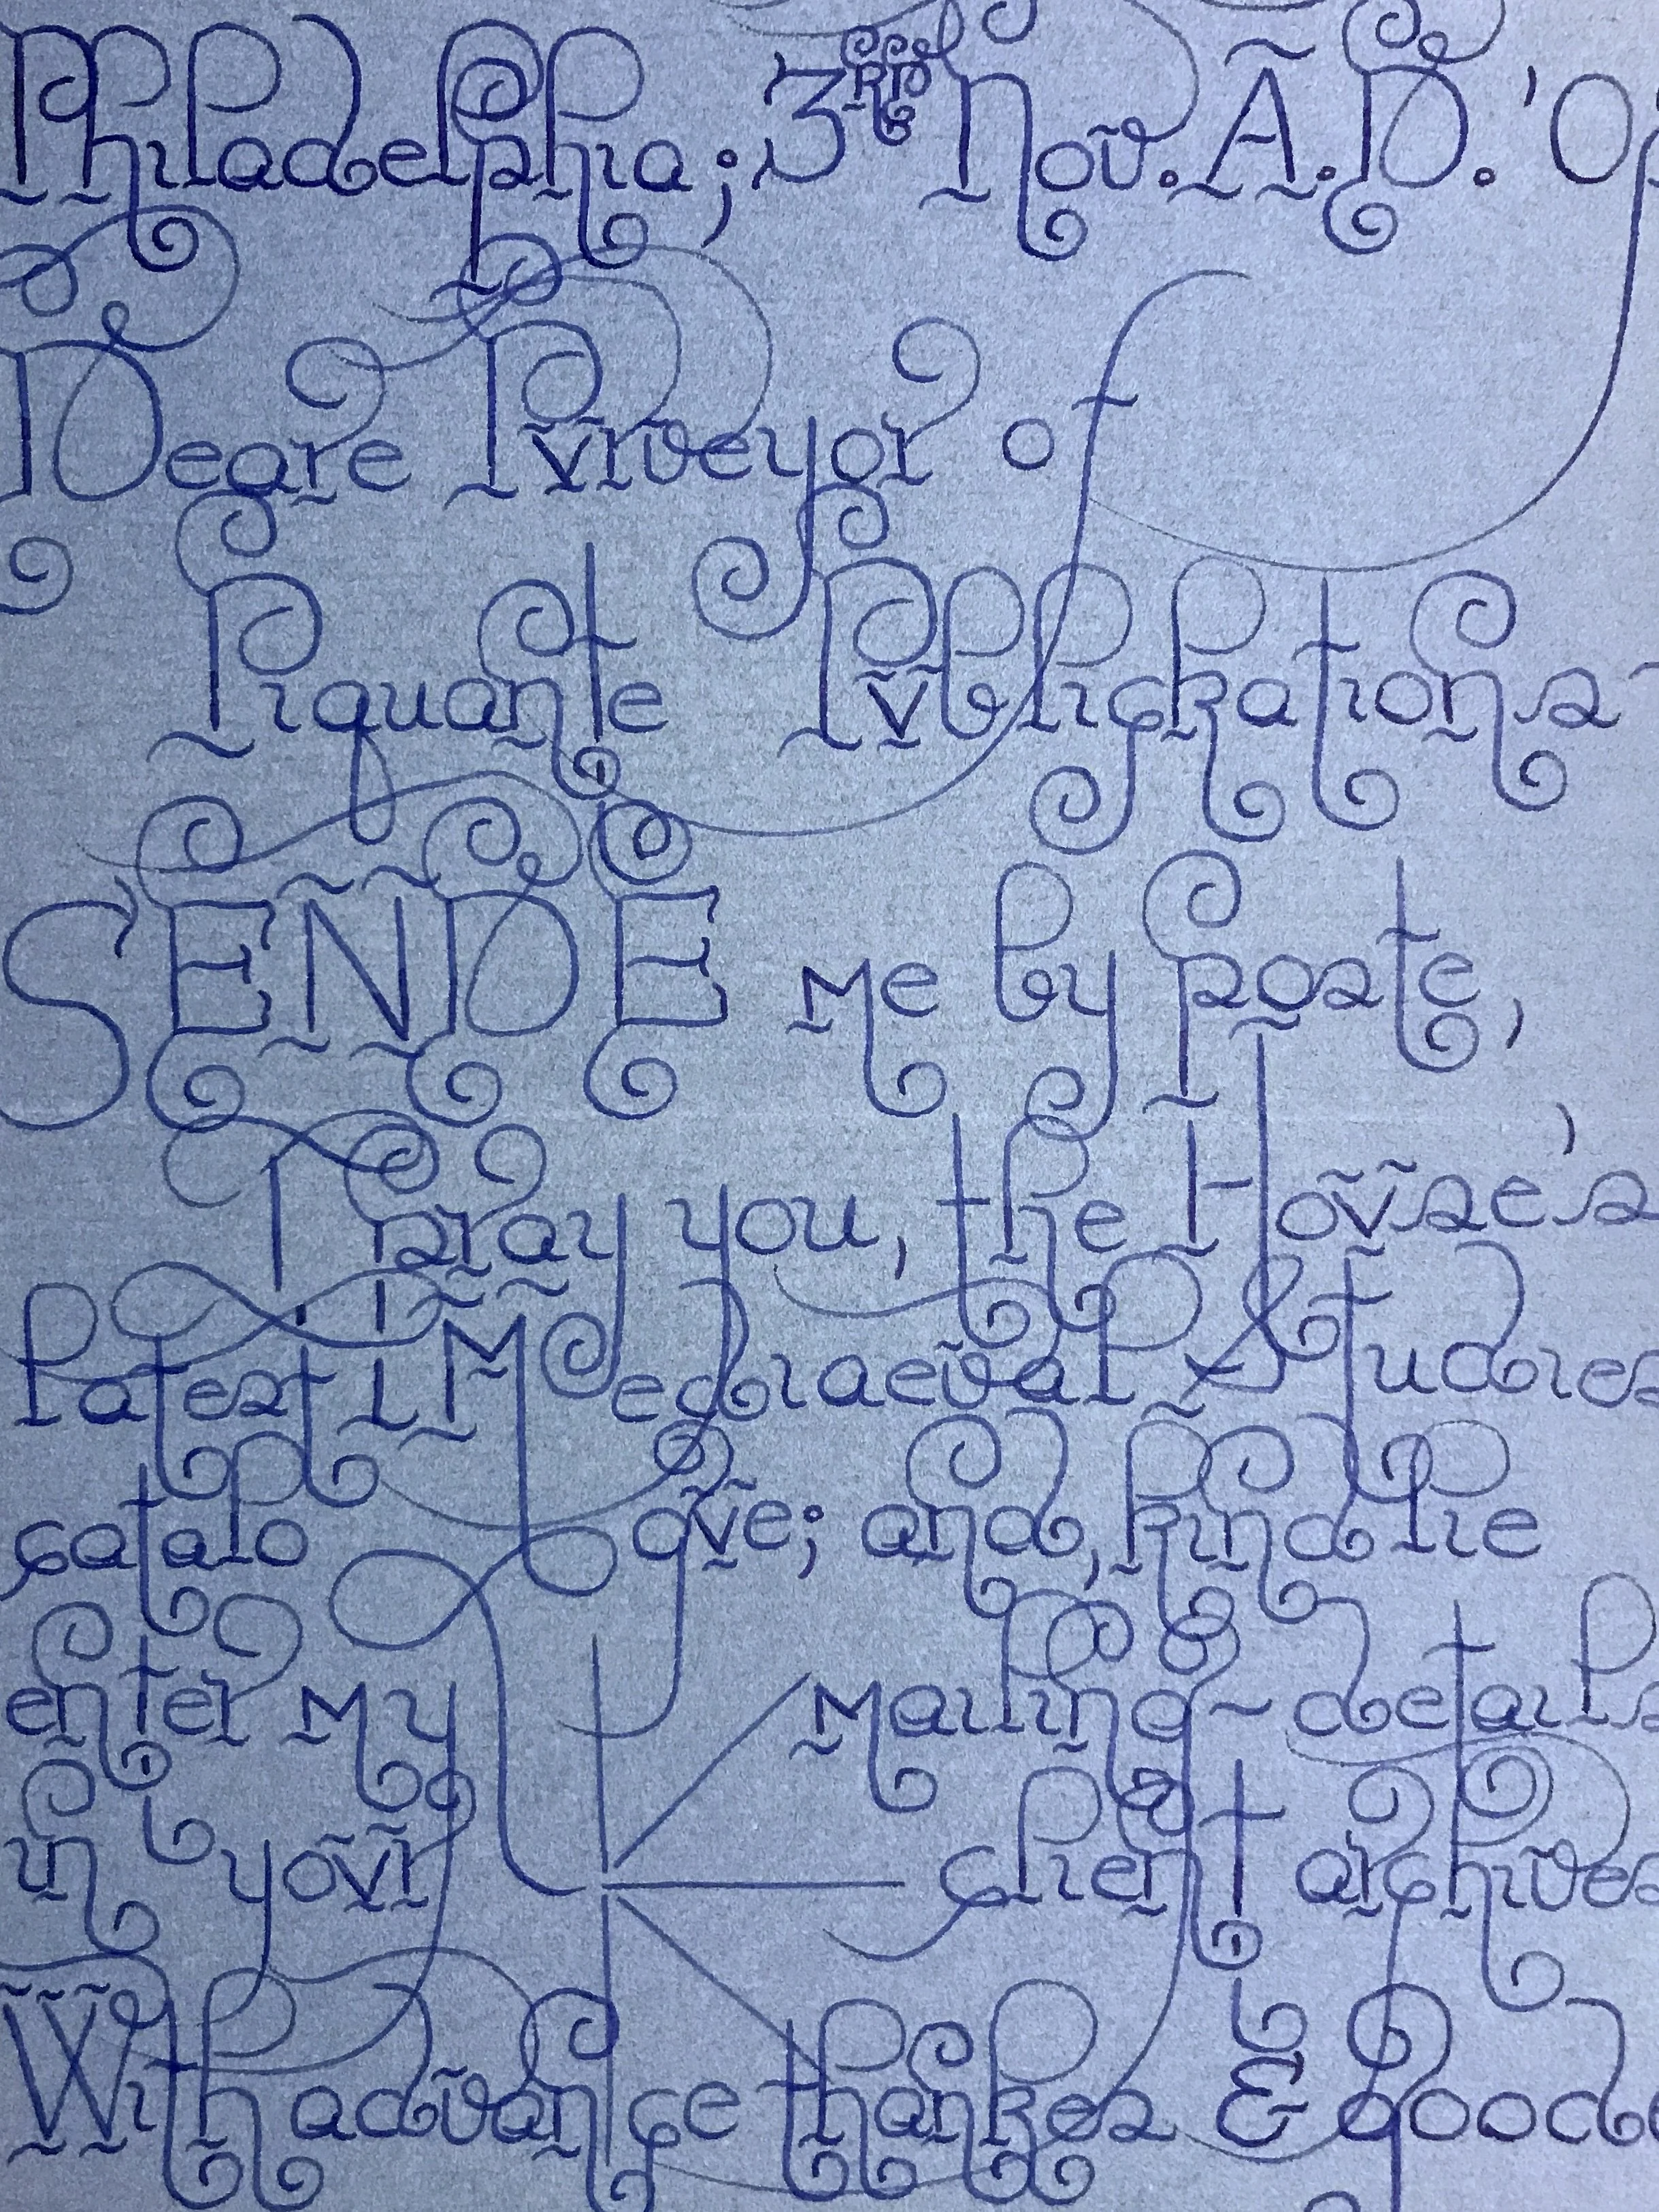 Philadelphia; 3RD Nov. A.D. '0
Deare Pvrveyor of
Piquante Pvblickations
SENDE me by poste,
I pray you, the Hovse's
latest Mediaeval Studies
catalogve; and, kindlie
enter my mailing-details
in yovr client archives
With advance thankes & goode